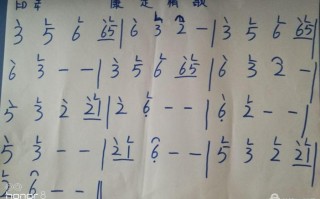 康定情歌
3 5 6 65 | 6 3 2 - | 3 5 6 65 |
6 3 - - | 3 5 6 65 | 6 3 2 - |
5 3 2 21 | 2 6 - - | 6 2 - - |
5 3 - - | 21 6 - - | 5 3 2 21 |
2 6 - - ||